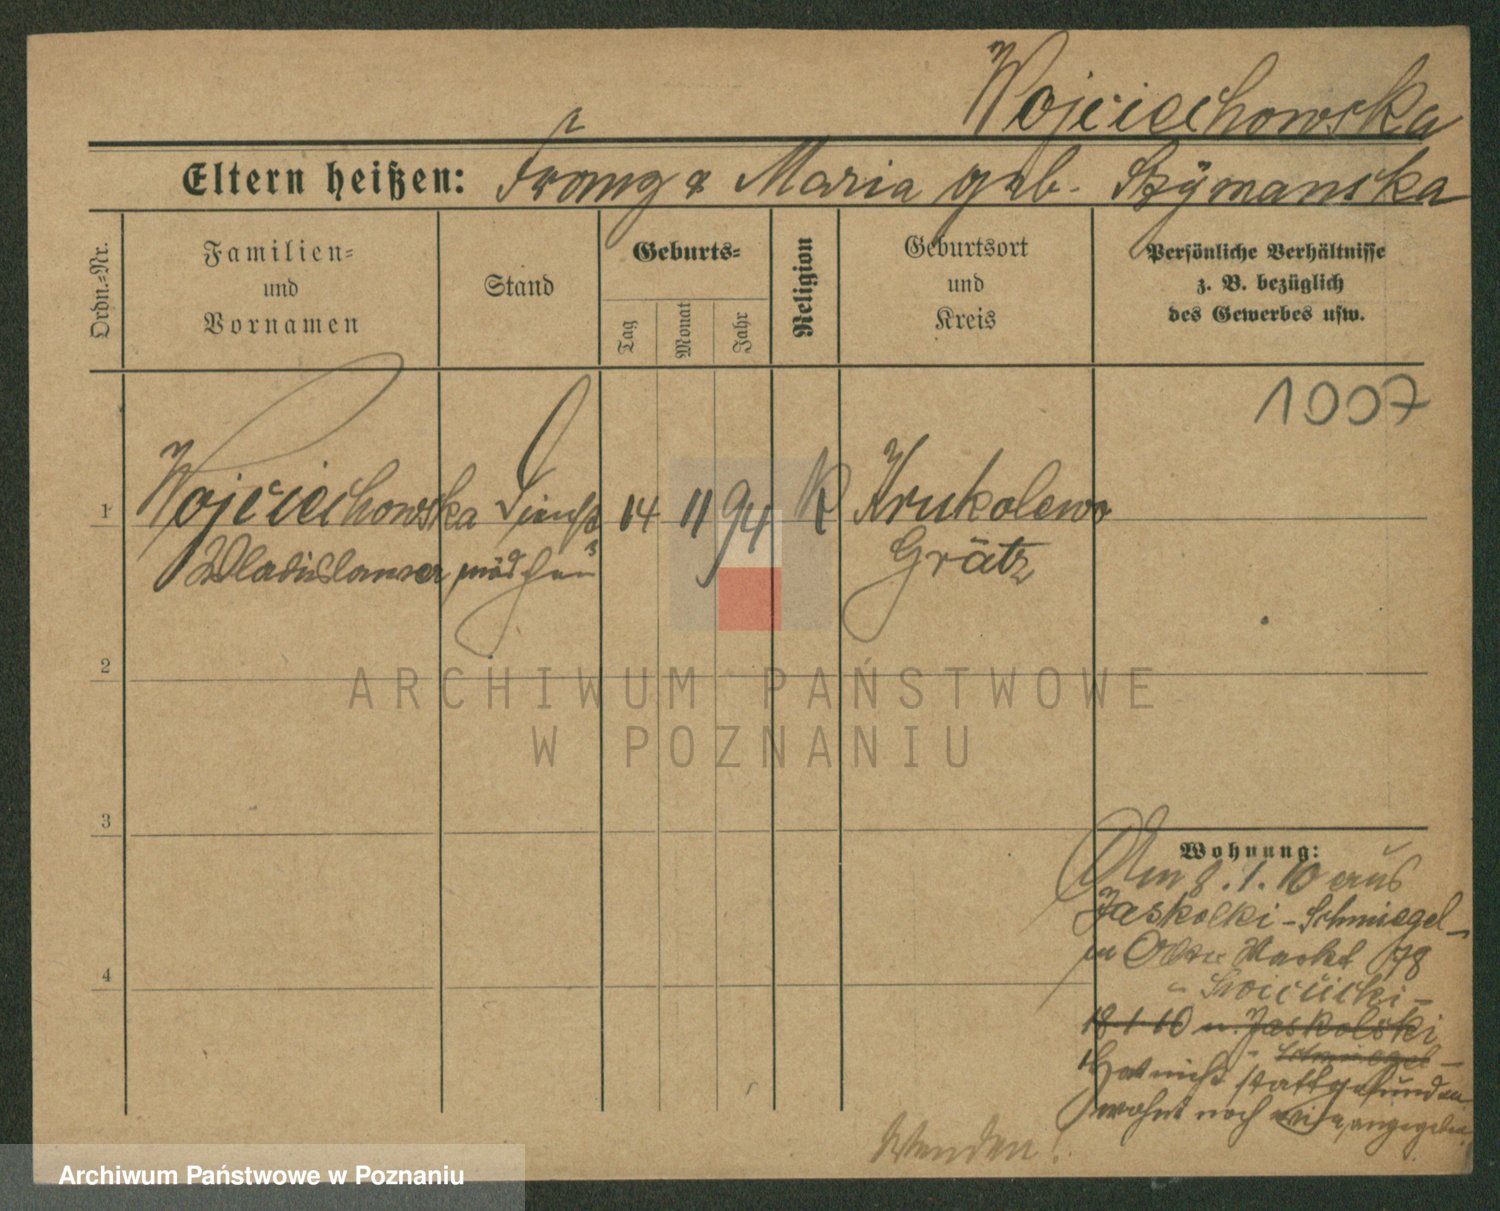 Wojciechowska
Eltern heißen: Franz & Maria geb. Szymanska
Ordn.-Nr.
Familien-
und
Vornamen
Stand
Geburts-
Tag
Monat
Jahr
Religion
Geburtsort
und
Kreis
Persönliche Verhältnisse
z. B. bezüglich
des Gewerbes usw.
1007
1 Wojciechowska Dienst 14 11 94 K Krukolewo
Wladislawa mädchen Grätz
2
3
4
ARCHIWUM PAŃSTWOWE
W POZNANIU
Wohnung:
Am 8.1.10 aus
Jaskolki - Schmiegel -
Alter Markt 78
18.1.10 n. Jaskolski
Schmiegel -
Hat nicht stattgefunden
wohnt noch wie angegeben
Wenden!
Archiwum Państwowe w Poznaniu